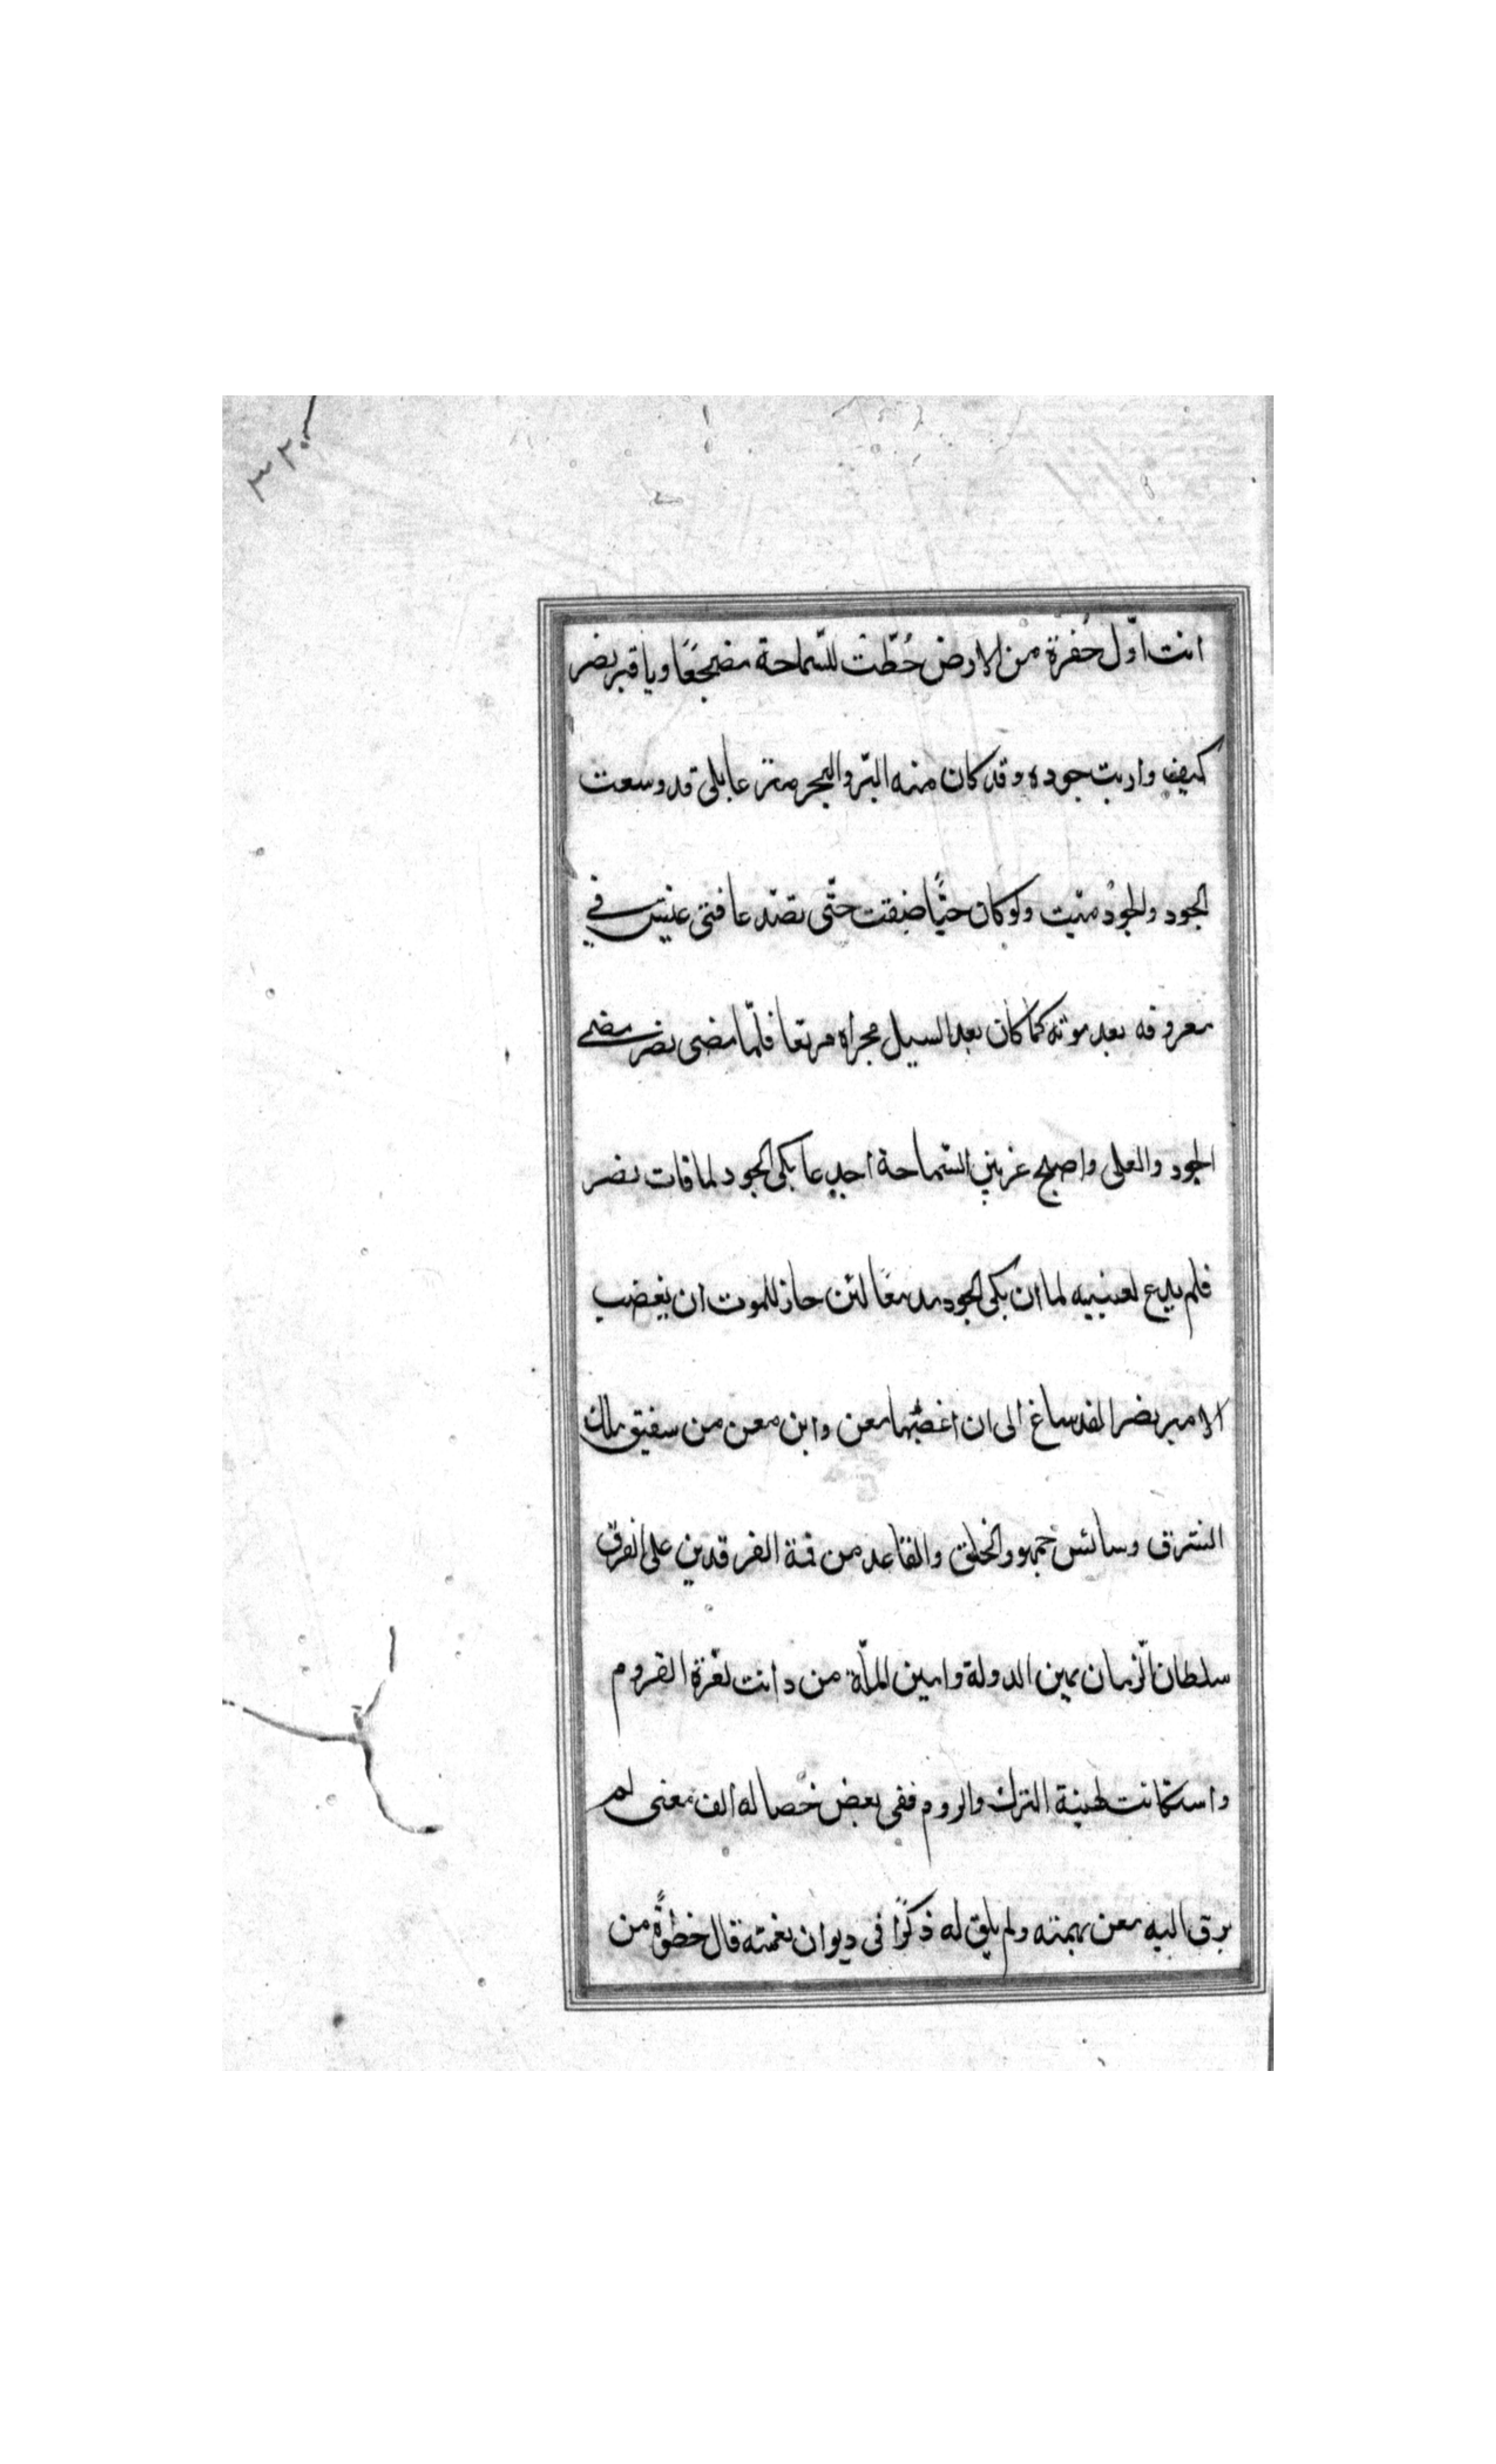 ٣٢٠
انت اوّل حُفرة من الارض خُطّت للسّماحة مضجعًا ويا قبر نصر
كيف واريت جوده وقد كان منه البرّ والبحر مترعا بلى قد وسعت
الجود والجودُ ميّت ولو كان حيًّا ضقت حتّى تصدّعا فتى عيش في
معروفه بعد موته كما كان بعد السيل مجراه مرتعا فلمّا مضى نصر مضى
الجود والعلى واصبح عرنين السّماحة اجدعا بكى الجود لما فات نصر
فلم يدع لعينيه لما ان بكى الجود مدمعًا لئن جاز للموت ان يغصب
الامير نصرا لقد ساغ الى ان اغصبها معن وابن معن من سفيق ملك
الشرق وسائس جمهور الخلق والقاعد من قمة الفرقدين على الفرق
سلطان الزّمان يمين الدولة وامين الملّة من دانت لعزّة القروم
واستكانت لهيبة الترك والروم ففي بعض خصاله الف معنى لم
يرق اليه معن بهمته ولم يلق له ذكرًا في ديوان نعمته قال خطوةً من